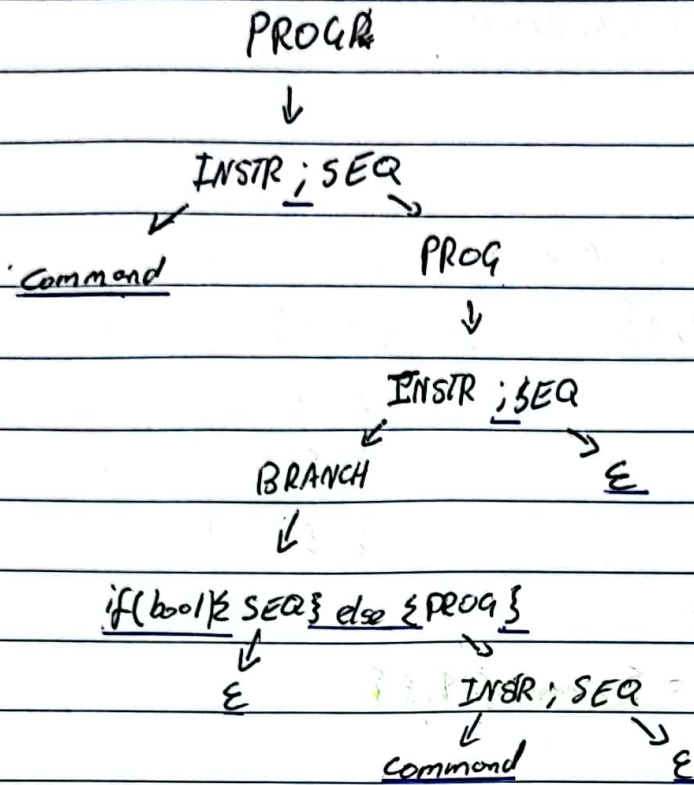 PROG
↓
INSTR ; SEQ
command
PROG
↓
INSTR ; SEQ
BRANCH
ε
↓
if(bool){ SEQ} else {PROG}
ε
INSTR ; SEQ
command
ε